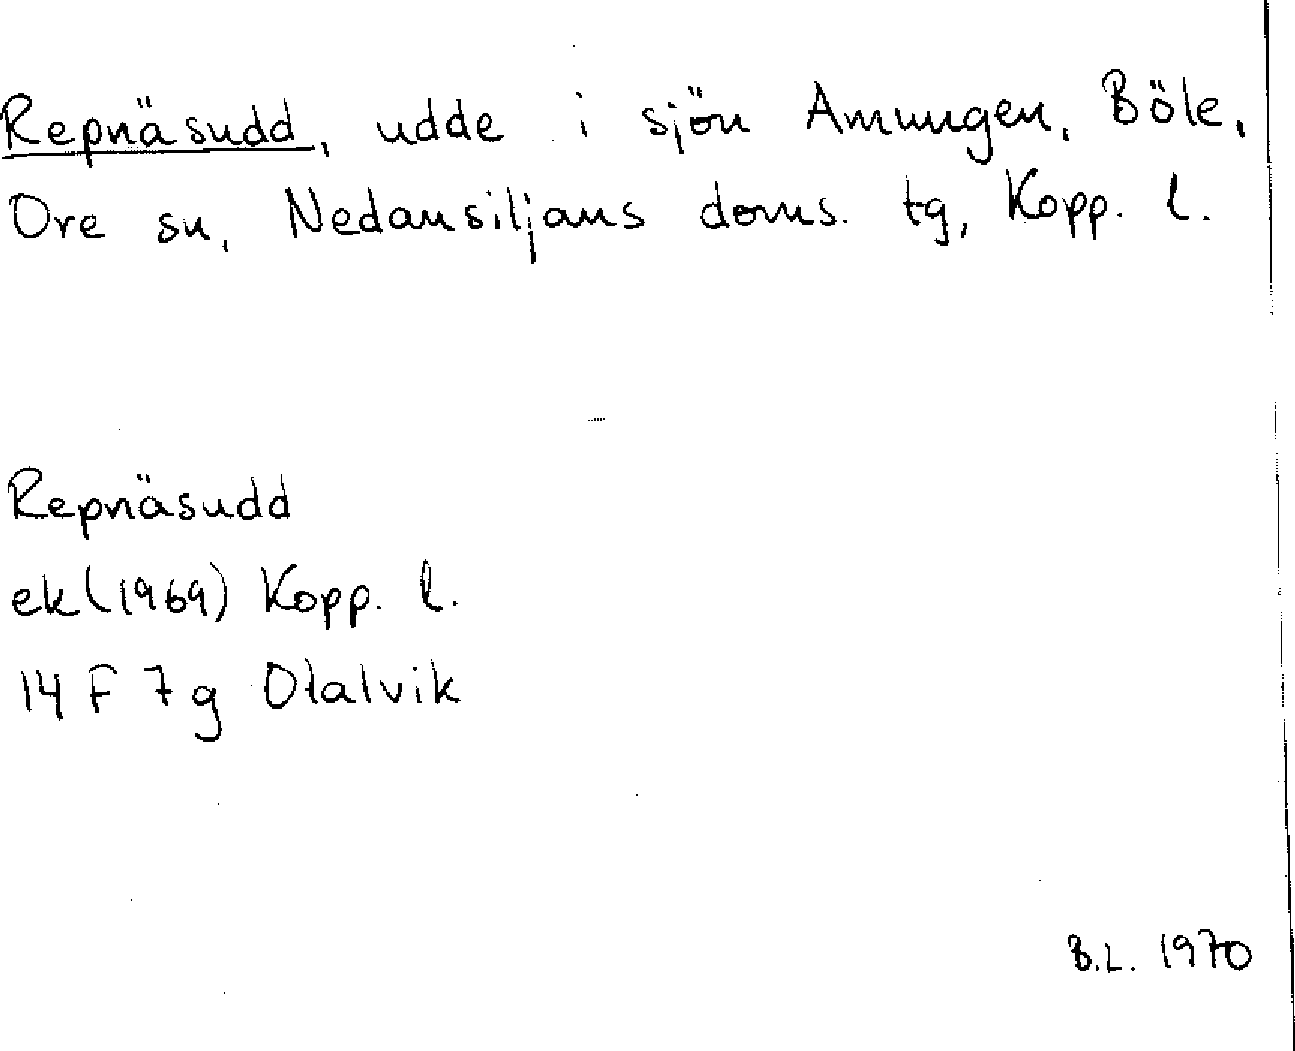 Repnäsudd, udde i sjön Amungen, Böle,
Ore sn, Nedansiljans doms. tg, Kopp. l.
Repnäsudd
ek (1969) Kopp. l.
14 F 7 g Dalalvik
B.L. 1970